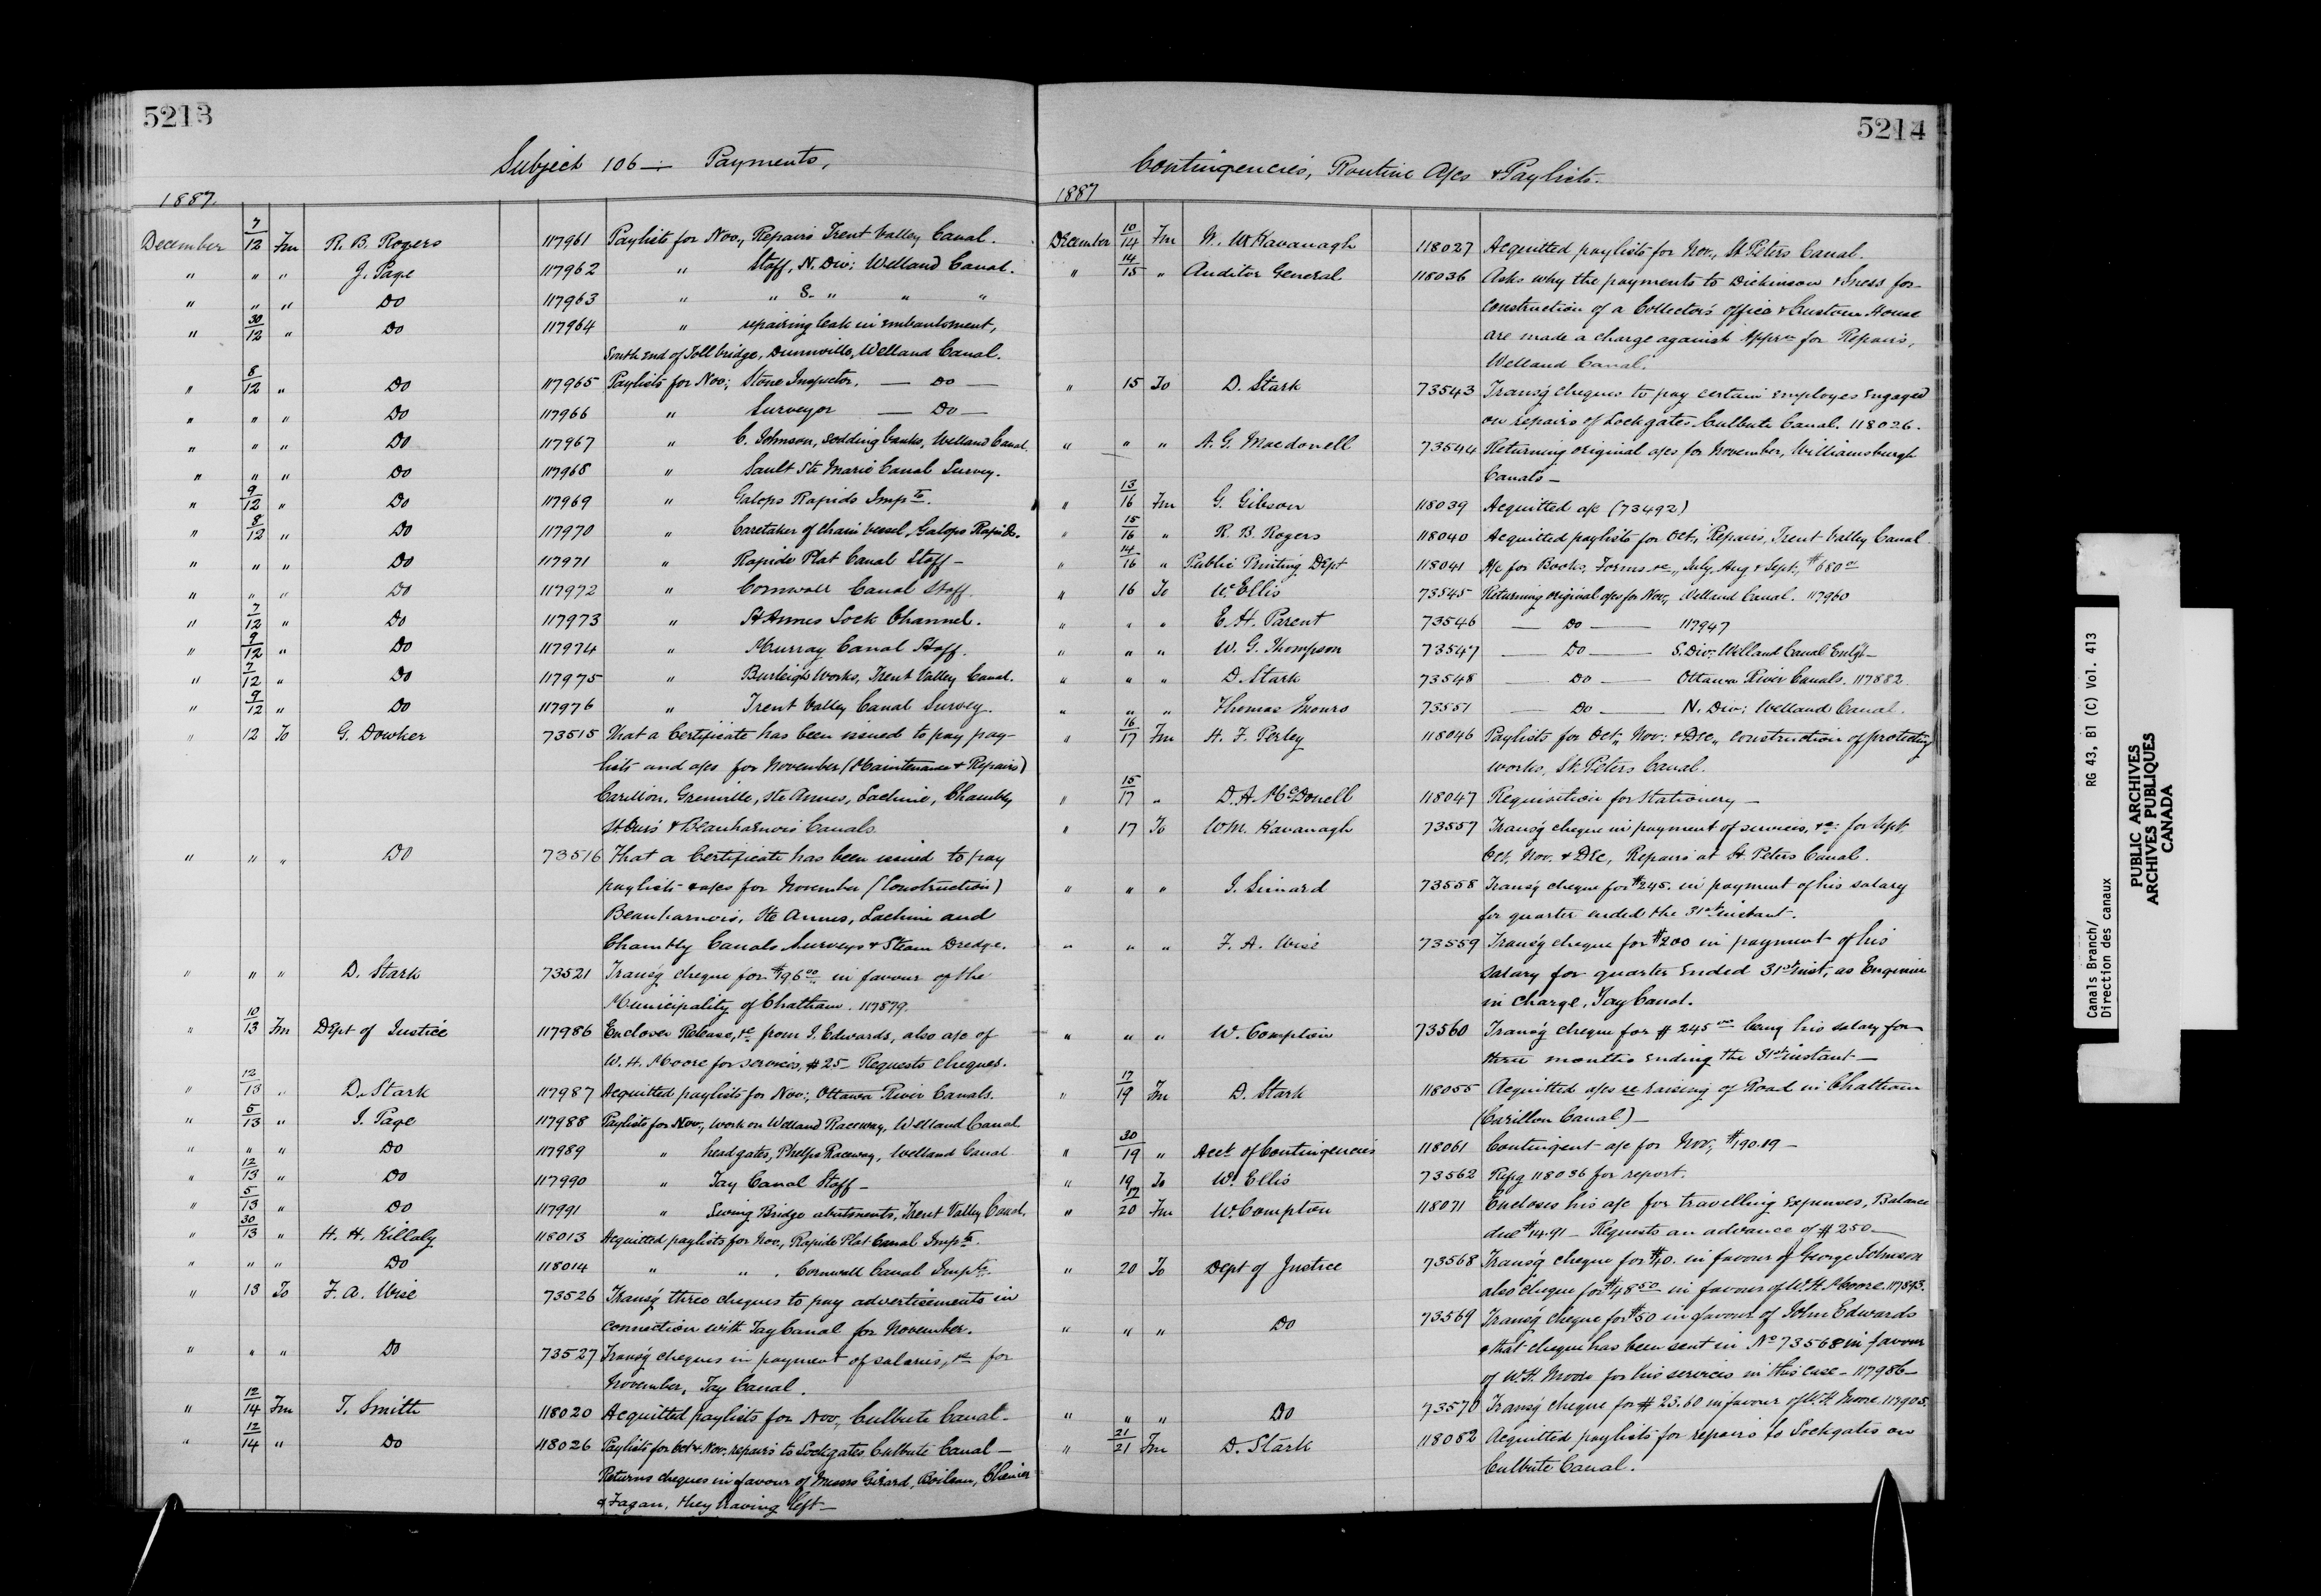 5213
Subject 106 — Payments,
1887
December 7/12 Fm R. B. Rogers 117961 Paylists for Nov., Repairs Trent Valley Canal.
" " " J. Page 117962 " Staff, N. Div: Welland Canal.
" " " Do 117963 " " S. " " "
" 30/12 " Do 117964 " repairing leak in embankment,
South end of Toll bridge, Dunnville, Welland Canal.
" 8/12 " Do 117965 Paylists for Nov; Stone Inspector. — Do —
" " " Do 117966 " Surveyor — Do —
" " " Do 117967 " C. Johnson, sodding banks, Welland Canal
" " " Do 117968 " Sault Ste Marie Canal Survey.
" 9/12 " Do 117969 " Galops Rapids Impts.
" 8/12 " Do 117970 " Caretaker of chain vessel, Galops Rapids.
" " " Do 117971 " Rapide Plat Canal Staff —
" " " Do 117972 " Cornwall Canal Staff.
" 7/12 " Do 117973 " St Annes Lock Channel.
" 9/12 " Do 117974 " Murray Canal Staff.
" 7/12 " Do 117975 " Burleigh Works, Trent Valley Canal.
" 9/12 " Do 117976 " Trent Valley Canal Survey.
" 12 To G. Dowker 73515 That a Certificate has been issued to pay pay-
lists and a/cs for November (Maintenance & Repairs)
Carillon, Grenville, Ste Annes, Lachine, Chambly
St. Ours & Beauharnois Canals.
" " " Do 73516 That a Certificate has been issued to pay
paylists & a/cs for November (Construction)
Beauharnois, Ste Annes, Lachine and
Chambly Canals Surveys & Steam Dredge.
" " " D. Stark 73521 Transg cheque for $196.00 in favour of the
Municipality of Chatham. 117879.
" 10/13 Fm Dept of Justice 117986 Encloses Release, &c from J. Edwards, also a/c of
W. H. Moore for services, $25 — Requests cheques.
" 12/13 " D. Stark 117987 Acquitted paylists for Nov:, Ottawa River Canals.
" 5/13 " J. Page 117988 Paylists for Nov., work on Welland Raceway, Welland Canal
" " " Do 117989 " head gates, Phelps Raceway, Welland Canal
" 12/13 " Do 117990 " Tay Canal Staff —
" 5/13 " Do 117991 " Swing Bridge abutments, Trent Valley Canal.
" 30/13 " H. H. Killaly 118013 Acquitted paylists for Nov., Rapide Plat Canal Impts.
" " " Do 118014 " " . Cornwall Canal Impts.
" 13 To F. A. Wise 73526 Transg three cheques to pay advertisements in
connection with Tay Canal for November.
" " " Do 73527 Transg cheques in payment of salaries, &c for
November, Tay Canal.
" 12/14 Fm T. Smith 118020 Acquitted paylists for Nov., Culbute Canal —
" 12/14 " Do 118026 Paylists for Oct & Nov. repairs to Lockgates Culbute Canal —
Returns cheques in favour of Messrs Girard, Boileau, Chenier
& Fagan, they having left —
5214
Contingencies, Routine A/cs & Paylists.
1887
December 10/14 Fm W. Kavanagh 118027 Acquitted paylists for Nov., St Peters Canal.
" 14/15 " Auditor General 118036 Asks why the payments to Dickinson & for
construction of a Collector's office & Custom House
are made a charge against Apprn for Repairs,
Welland Canal.
" 15 To D. Stark 73543 Transg cheques to pay certain employes engaged
on repairs of Lockgates Culbute Canal. 118026.
" " " A. G. Macdonell 73544 Returning original a/cs for November, Williamsburgh
Canals —
" 13/16 Fm G. Gibson 118039 Acquitted a/c (73492)
" 15/16 " R. B. Rogers 118040 Acquitted paylists for Oct., Repairs, Trent Valley Canal.
" 14/16 " Public Printing Dept 118041 A/c for Books, Forms &c., July, Aug & Sept., $680
" 16 To W. Ellis 73545 Returning original a/cs for Nov., Welland Canal. 117960
" " " E. H. Parent 73546 — Do — 117947
" " " W. G. Thompson 73547 — Do — S. Div: Welland Canal Enlgt —
" " " D. Stark 73548 — Do — Ottawa River Canals. 117882
" " " Thomas Monro 73551 — Do — N. Div: Welland Canal.
" 16/17 Fm H. F. Perley 118046 Paylists for Oct., Nov: & Dec., construction of protecting
works, St. Peters Canal.
" 15/17 " D. A. McDonell 118047 Requisition for Stationery —
" 17 To W. M. Kavanagh 73557 Transg cheque in payment of services, &c: for Sept.
Oct, Nov. & Dec, Repairs at St. Peters Canal.
" " " J. Simard 73558 Transg cheque for $245. in payment of his salary
for quarter ended the 31st instant.
" " " F. A. Wise 73559 Transg cheque for $200 in payment of his
salary for quarter ended 31st inst, as Engineer
in charge, Tay Canal.
" " " W. Compton 73560 Transg cheque for $245.00 being his salary for
three months ending the 31st instant —
" 17/19 Fm D. Stark 118055 Acquitted a/cs re raising of Road in Chatham
(Carillon Canal) —
" 30/19 " Acct of Contingencies 118061 Contingent a/c for Nov., $190.19 —
" 19 To W. Ellis 73562 Refg 118036 for report.
" 17/20 Fm W. Compton 118071 Encloses his a/c for travelling expenses, Balance
due $14.91 — Requests an advance of $250 —
" 20 To Dept of Justice 73568 Transg cheque for $40. in favour of George Johnson
also cheque for $48.50 in favour of W. H. Moore. 117843.
" " " Do 73569 Transg cheque for $50 in favour of John Edwards
& that cheque has been sent in No 73568 in favour
of W. H. Moore for his services in this case — 117986 —
" " " Do 73570 Transg cheque for $23.60 in favour of W. H. Moore. 117905.
" 21/21 Fm D. Stark 118082 Acquitted paylists for repairs to Lockgates on
Culbute Canal.
Canals Branch/
Direction des canaux
RG 43, B1 (C) Vol. 413
PUBLIC ARCHIVES
ARCHIVES PUBLIQUES
CANADA